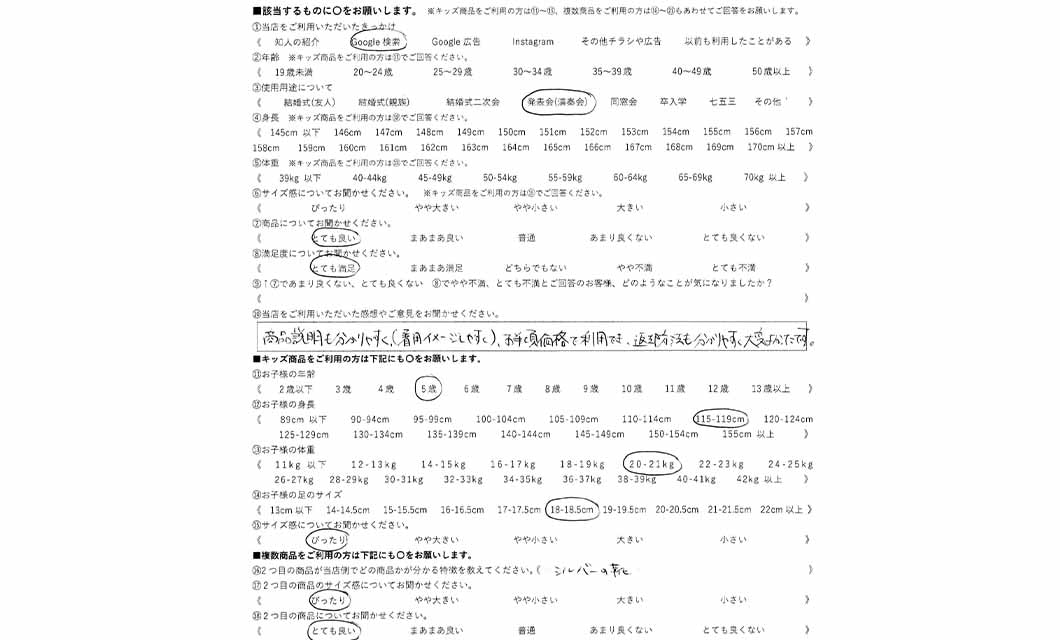 ■該当するものに〇をお願いします。 ※キッズ商品をご利用の方は⑪〜⑮、複数商品をご利用の方は⑯〜⑳もあわせてご回答をお願いします。
①当店をご利用いただいたきっかけ
《 知人の紹介 Google 検索 Google 広告 Instagram その他チラシや広告 以前も利用したことがある 》
②年齢 ※キッズ商品をご利用の方は⑪でご回答ください。
《 19歳未満 20〜24歳 25〜29歳 30〜34歳 35〜39歳 40〜49歳 50歳以上 》
③使用用途について
《 結婚式(友人) 結婚式(親族) 結婚式二次会 発表会(演奏会) 同窓会 卒入学 七五三 その他 》
④身長 ※キッズ商品をご利用の方は⑫でご回答ください。
《 145cm 以下 146cm 147cm 148cm 149cm 150cm 151cm 152cm 153cm 154cm 155cm 156cm 157cm
158cm 159cm 160cm 161cm 162cm 163cm 164cm 165cm 166cm 167cm 168cm 169cm 170cm 以上 》
⑤体重 ※キッズ商品をご利用の方は⑬でご回答ください。
《 39kg 以下 40-44kg 45-49kg 50-54kg 55-59kg 60-64kg 65-69kg 70kg 以上 》
⑥サイズ感についてお聞かせください。 ※キッズ商品をご利用の方は⑮でご回答ください。
《 ぴったり やや大きい やや小さい 大きい 小さい 》
⑦商品についてお聞かせください。
《 とても良い まあまあ良い 普通 あまり良くない とても良くない 》
⑧満足度についてお聞かせください。
《 とても満足 まあまあ満足 どちらでもない やや不満 とても不満 》
⑨↑⑦であまり良くない、とても良くない ⑧でやや不満、とても不満とご回答のお客様、どのようなことが気になりましたか？
《 》
⑩当店をご利用いただいた感想やご意見をお聞かせください。
商品説明も分かりやすく、(着用イメージしやすく)、お手頃価格で利用でき、返却方法も分かりやすく大変よかったです。
■キッズ商品をご利用の方は下記にも〇をお願いします。
⑪お子様の年齢
《 2歳以下 3歳 4歳 5歳 6歳 7歳 8歳 9歳 10歳 11歳 12歳 13歳以上 》
⑫お子様の身長
《 89cm 以下 90-94cm 95-99cm 100-104cm 105-109cm 110-114cm 115-119cm 120-124cm
125-129cm 130-134cm 135-139cm 140-144cm 145-149cm 150-154cm 155cm 以上 》
⑬お子様の体重
《 11kg 以下 12-13kg 14-15kg 16-17kg 18-19kg 20-21kg 22-23kg 24-25kg
26-27kg 28-29kg 30-31kg 32-33kg 34-35kg 36-37kg 38-39kg 40-41kg 42kg 以上 》
⑭お子様の足のサイズ
《 13cm 以下 14-14.5cm 15-15.5cm 16-16.5cm 17-17.5cm 18-18.5cm 19-19.5cm 20-20.5cm 21-21.5cm 22cm 以上 》
⑮サイズ感についてお聞かせください。
《 ぴったり やや大きい やや小さい 大きい 小さい 》
■複数商品をご利用の方は下記にも〇をお願いします。
⑯2つ目の商品が当店側でどの商品かが分かる特徴を教えてください。《 シルバーの靴 》
⑰2つ目の商品のサイズ感についてお聞かせください。
《 ぴったり やや大きい やや小さい 大きい 小さい 》
⑱2つ目の商品についてお聞かせください。
《 とても良い まあまあ良い 普通 あまり良くない とても良くない 》